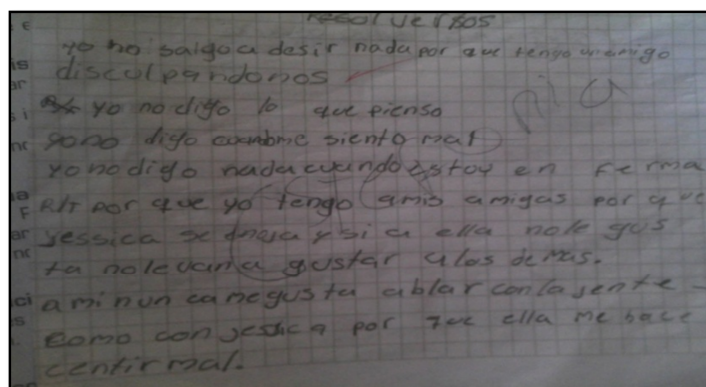 resolvemos
yo no saigo a desir nada por que tengo un amigo
disculpandonos
R/t yo no digo lo que pienso
yo no digo cuambme siento mal
yo no digo nada cuando estoy en ferma
R/t por que yo tengo amis amigas por que
yessica se enoja y si a ella nole gus
ta nole vana gustar alos demas.
amin nun ca megusta ablar con la jente -
como con jessica por que ella me hace
centir mal.